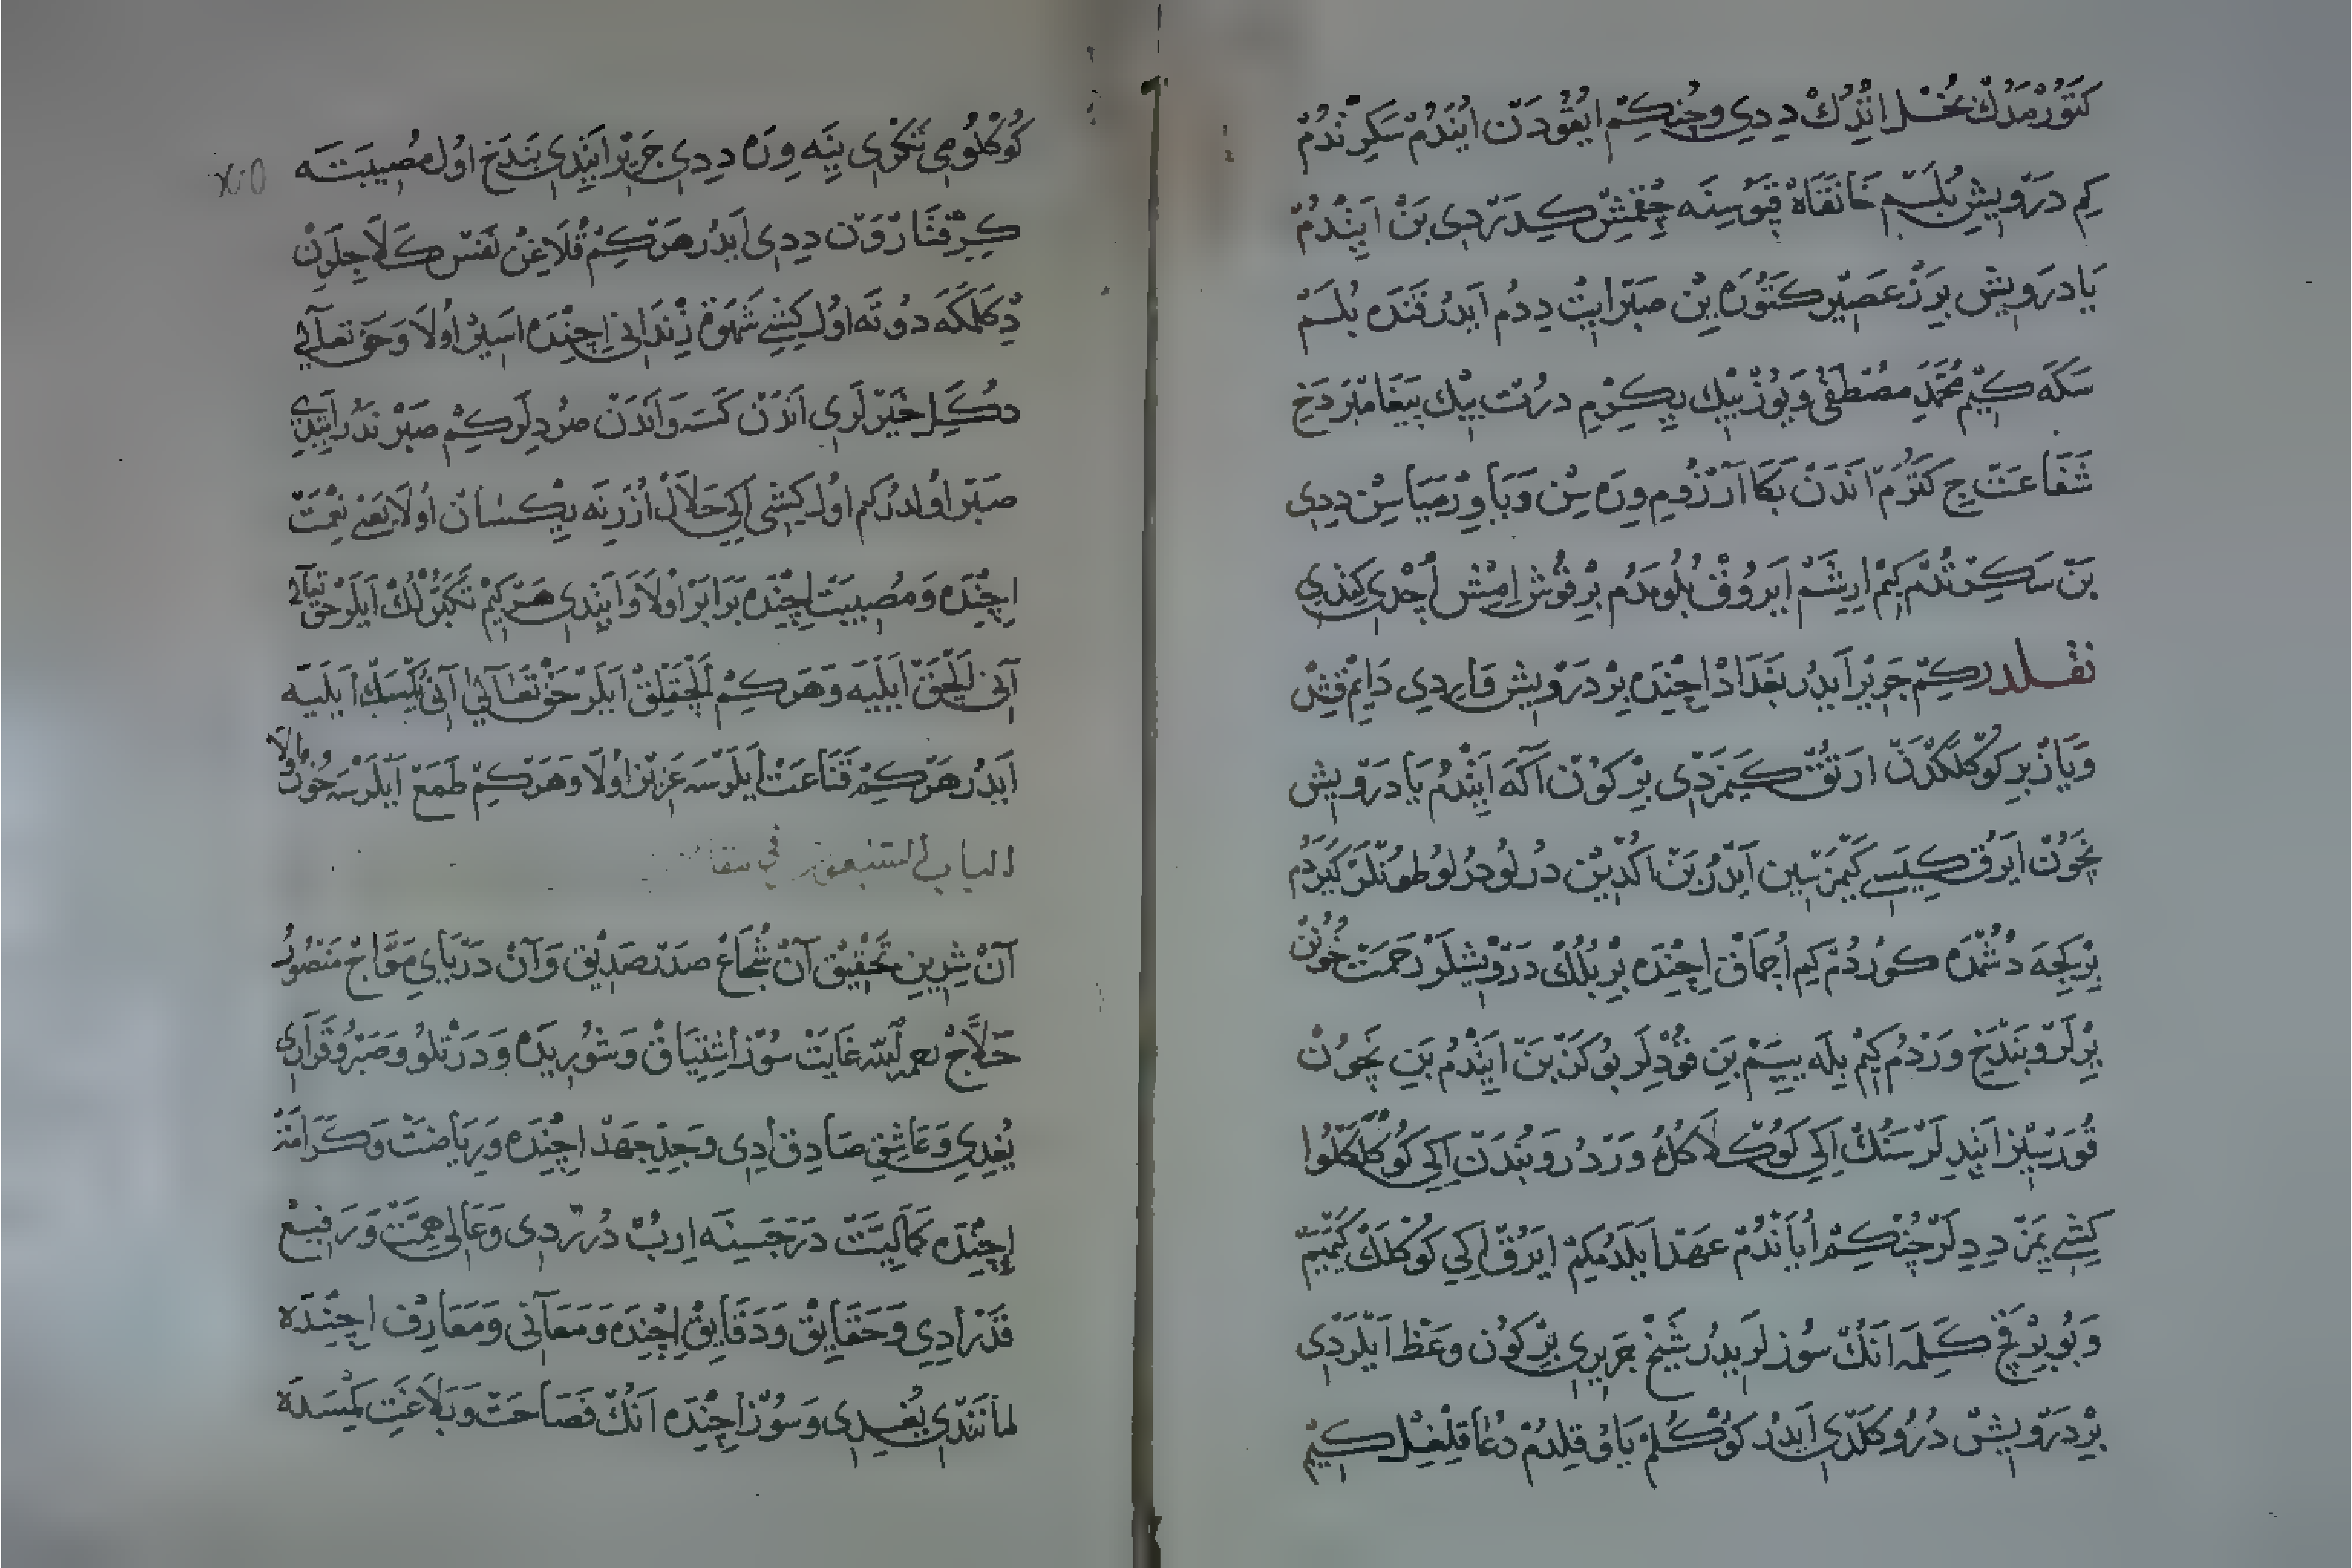 كتورمدك بخل اتدك ددي وچنكم ايقودن ايندم سكرندم
كم درويش بلسم خانقاه قپوسنه چقمش كدردي بن ايتدم
يا درويش برز عصير كتوره ين صبر ايت ددم ايدر قنده بلسم
سكه كيم محمد مصطفى ويوز بيك يكرم درت بيك پيغامبر دخ
شفاعتچ كتورم اندن بكا آرزوم وره سن ويا ورمياسن ددي
بن سكرتدم كيم ارشم ايروق بلومدم بر قوش امش اچدي كتدي
نقلدر كم جرير ايدر بغداد اچنده بر درويش واردي دايم قش
وياز بر كوكلكدن ارتق كيمزدي بر كون اكه ايتدم يا درويش
نچون ايرق كيسي كيمزسين ايدر بن اكدين درلو درلو طونلر كيردم
بر كجه دشمده كوردم كيم اجماق اچنده بر بلك درويشلر رحمت خونن
يرلر وبندخ وردم كيم بله ييم بن قودلر بوكز بن ايتدم بن نچون
قورسز ايتديلر سنك اكي كوكلاكك وردر وبندن اكي كوكلكلو
كشي يمز ددلر چنكم اياندم عهد ايلدم كم ايرق اكي كوكلك كيميم
وبو بر قچ كلمه انك سوزلريدر شيخ جريري بر كون وعظ ايلردي
بر درويش درو كلدي ايدر كوكلم ياو قلدم دعا قلغل كيم
كوكلومي تكري ينه وره ددي جرير ايتدي بندخ اول مصيبته
كرفتارون ددي ايدر هركم قلاغن نفس كلاجلون
دكلمكه دوته اول كشي شهوة زنداني اچنده اسير اولا وحق تعالى
دكل خيرلري اندن كسه واندن صردلر كم صبر ندر ايتدي
صبر اولدر كم اول كشي اكي حلال اوزرنه يكسان اولا يعني نعمت
اچنده ومصيبت اچنده برابر اولا وايتدي هركيم تكبرلك ايلر حق تعالى
آني الچق ايليه وهركم الچقلق ايلر حق تعالى آني يكسك ايليه
ايدر هركم قناعت ايلرسه عزيز اولا وهركم طمع ايلرسه خور اولا
الباب السبعون في مقا
آن شرين تحقيق آن شجاع صدر صديق وآن درياي مواج منصور
حلاج رحمه الله غايت سوز اشتياق وشوريده ودرتلو وصبر وقراري
يغدي وعاشق صادق ادي وجد جهد اچنده ورياضت وكرامت
اچنده كماليت درجسنه ارب دررردي وعالي همت ورفيع
قدر ادي وحقايق ودقايق اچنده ومعاني ومعارف اچنده
مانندي يغدي وسوز اچنده انك فصاحت وبلاغت كمسده